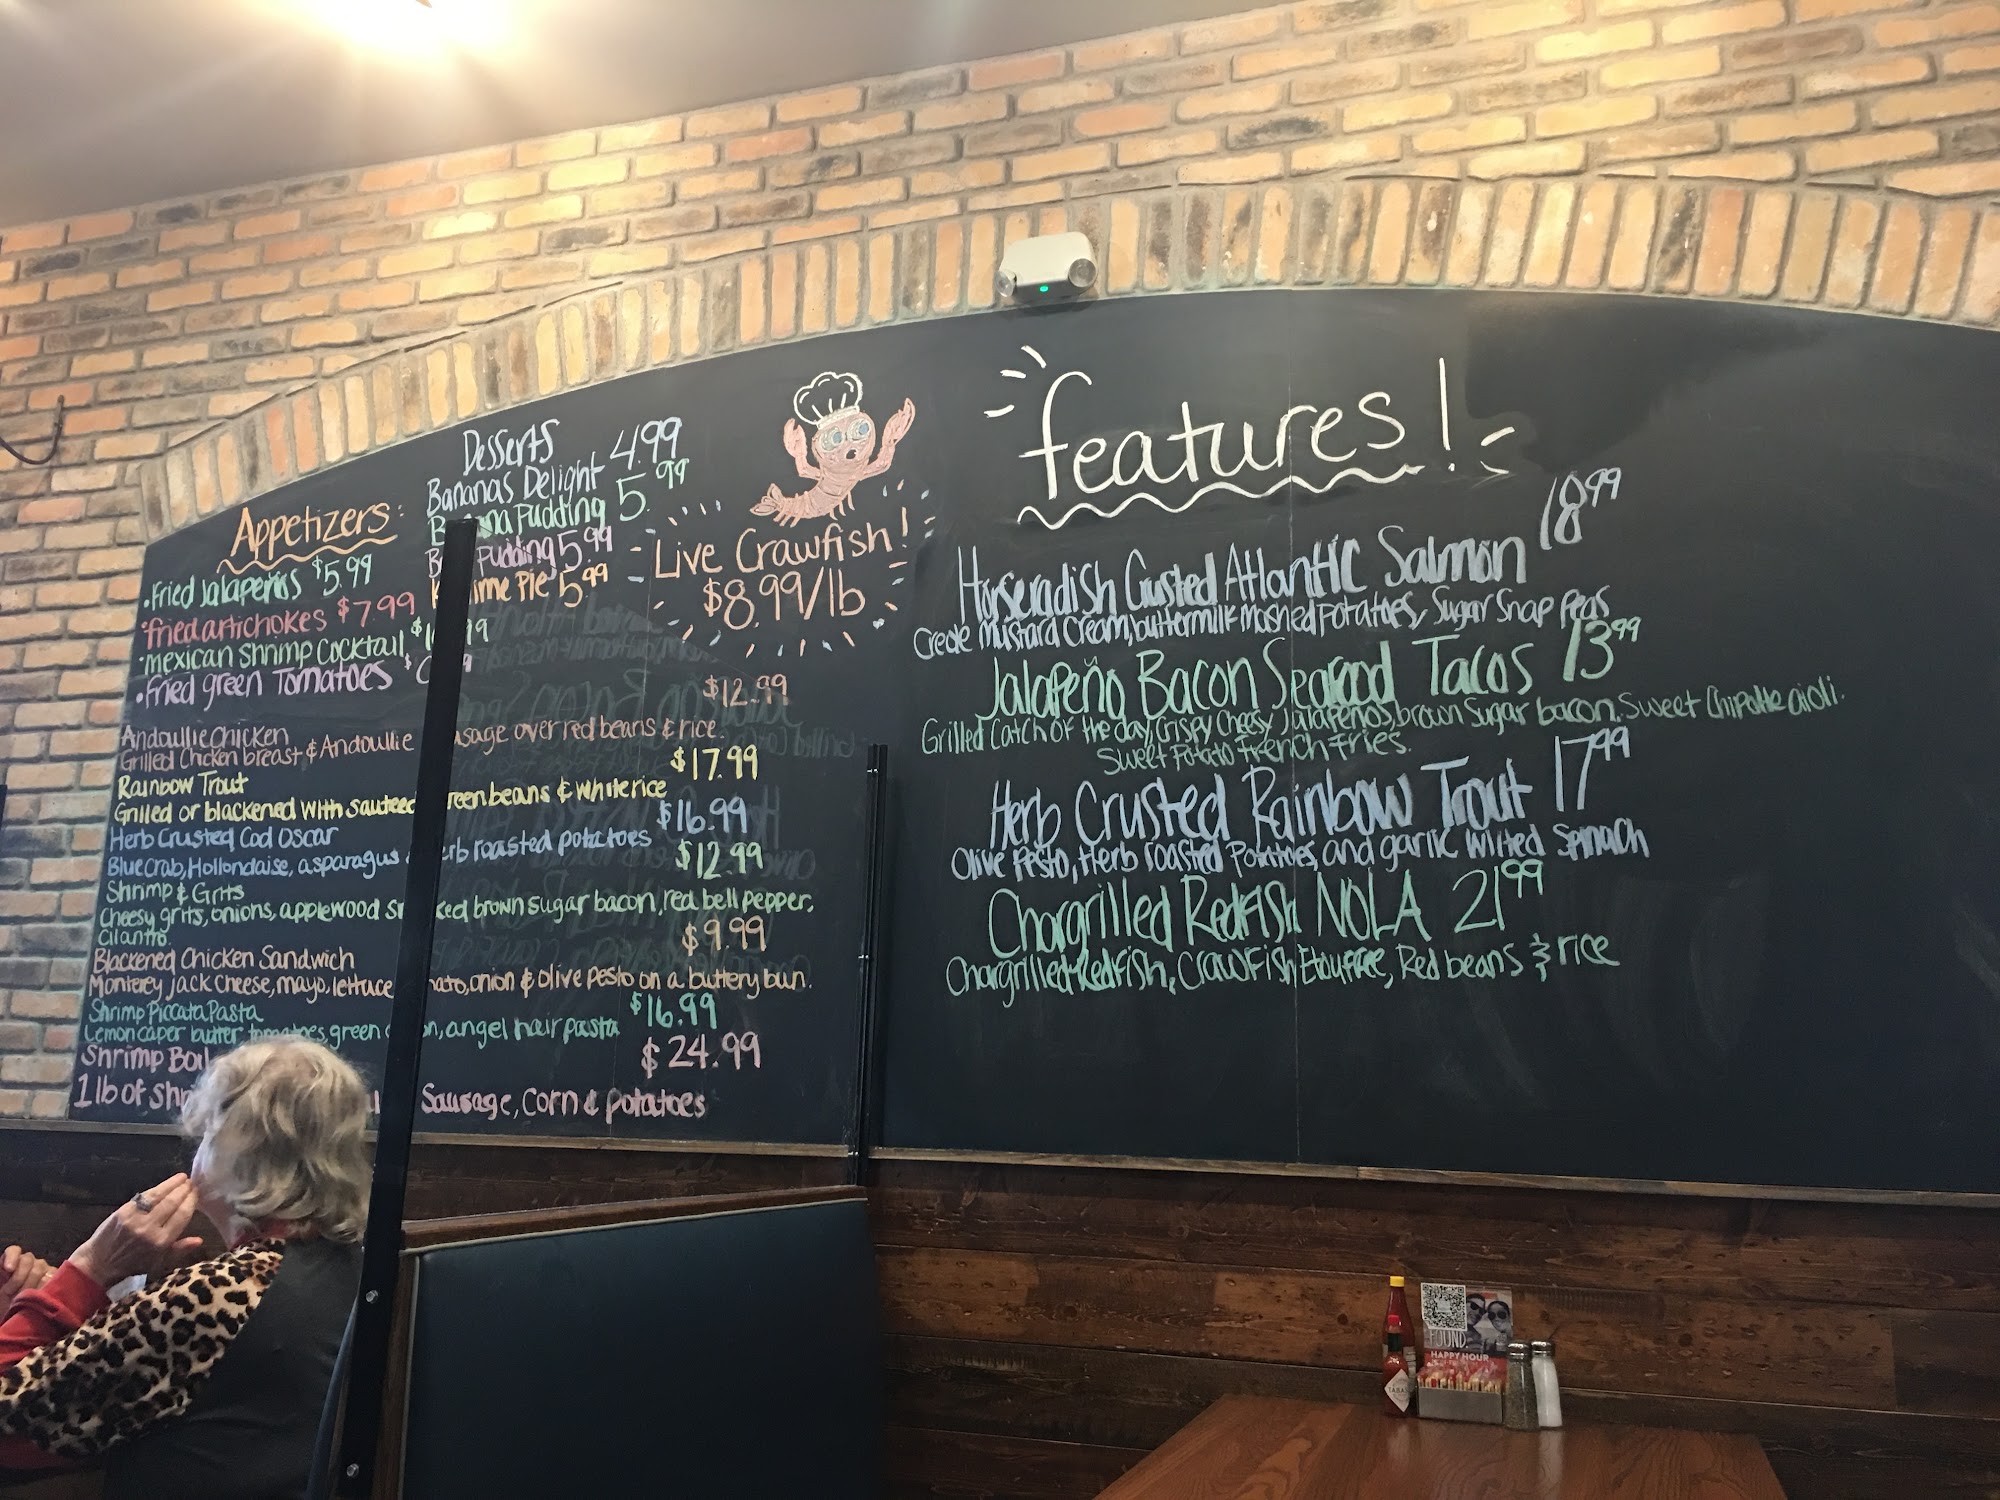 Desserts
Bananas Delight 4.99
Pudding 5.99
Pudding 5.99
Pie 5.99
Appetizers:
•Fried Jalapeños $5.99
•fried artichokes $7.99
•mexican shrimp cocktail
•fried green Tomatoes
Live Crawfish!
$8.99/lb
$12.99
Andoullie Chicken
Grilled Chicken breast & Andoullie over red beans & rice.
$17.99
Rainbow Trout
Grilled or blackened with sauteed beans & white rice
$16.99
Herb Crusted Cod Oscar
Blue Crab, Hollondaise, asparagus roasted potatoes
$12.99
Shrimp & Grits
Cheesy grits, onions, applewood brown sugar bacon, red bell pepper,
Cilantro.
$9.99
Blackened Chicken Sandwich
Monterey Jack Cheese, mayo, lettuce onion & olive pesto on a buttery bun.
$16.99
Shrimp Piccata Pasta
Lemon caper butter, tomatoes, green angel hair pasta
$24.99
Shrimp
1 lb of Sausage, Corn & potatoes
features!
Horseradish Crusted Atlantic Salmon 18.99
Creole Mustard Cream, buttermilk mashed potatoes, Sugar Snap Peas
Jalapeño Bacon Seafood Tacos 13.99
Grilled Catch of the day, Crispy Cheesy Jalapeños, brown Sugar bacon. Sweet Chipotle aioli.
Sweet Potato French Fries.
Herb Crusted Rainbow Trout 17.99
Olive Pesto, Herb roasted Potatoes, and garlic wilted Spinach
Chargrilled Redfish NOLA 21.99
Chargrilled Redfish, Crawfish Etouffee, Red beans & rice
FOUND.
HAPPY HOUR